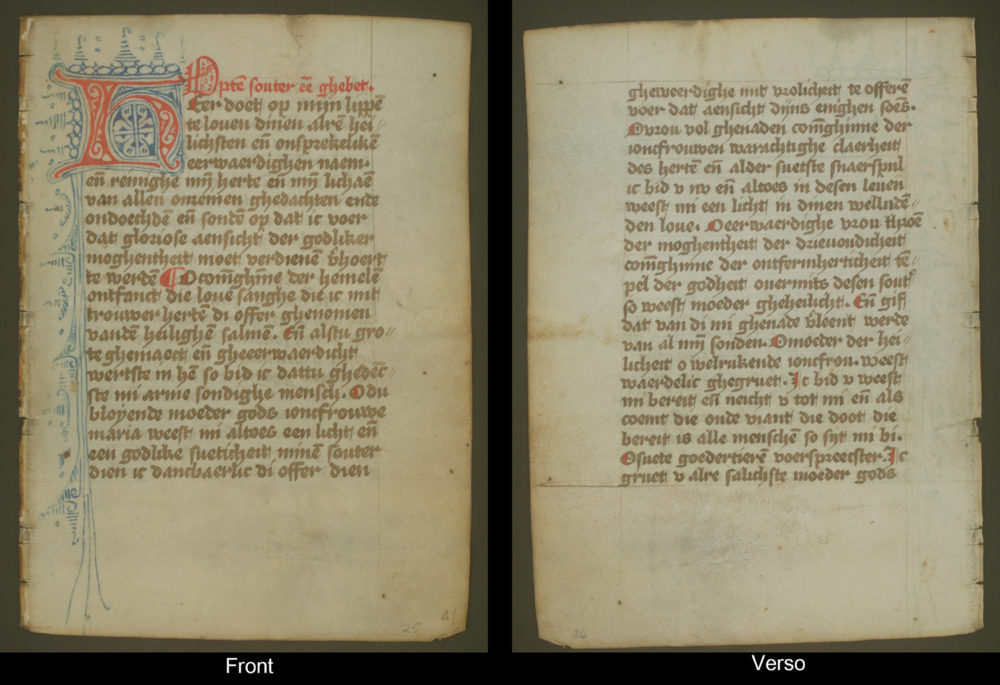 Opten souter eē ghebet.
Heer doet op mijn lippē
te louen dinen alrē hei
lichsten eñ onsprekelikē
eerwaerdighen naem.
eñ reinighe mij herte eñ mij lichaē
van allen onreinen ghedachten ende
ondoechdē eñ sondē op dat ic voer
dat gloriose aensicht der godliker
moghentheit moet verdienen v̄hoert
te werdē O comīghīne der hemelē
ontfanct die louē sanghe die ic mit
trouwer hertē di offer ghenomen
vandē heilighē salmē. Eñ alstu gro
te ghemaect eñ gheeerwaerdicht
wertste in hē so bid ic dattu ghedēc
ste mi arme sondighe mensch. O du
bloyende moeder gods ioncfrouwe
maria weest mi altoes een licht eñ
een godlike sueticheit minē souter
dien ic dancbaerlic di offer dien
gheweerdighe mit vrolicheit te offerē
voer dat aensicht dijns enighen soēs.
O vrou vol ghenaden comīghinne der
ioncfrouwen warachtighe claerheit
des hertē eñ alder suetste snaerspul
ic bid v nv eñ altoes in desen leuen
weest mi een licht in dinen welludē
den loue. O eerwaerdighe vrou throē
der moghentheit der drieuoudicheit
comīghinne der ontfermherticheit tē
pel der godheit ouermits desen sout
so weest moeder gheheilicht. Eñ gif
dat van di mi ghenade v̄leent werde
van al mij sonden. O moeder der hei
licheit o welrukende ioncfrou. weest
waerdelic ghegruet. Ic bid v weest
mi bereit eñ neicht v tot mi eñ als
coemt die oude viant die doot die
bereit is alle menschē so sijt mi bi.
O suete goedertierē voerspreecster. Ic
gruet v alre salichste moeder gods
26
Front
Verso